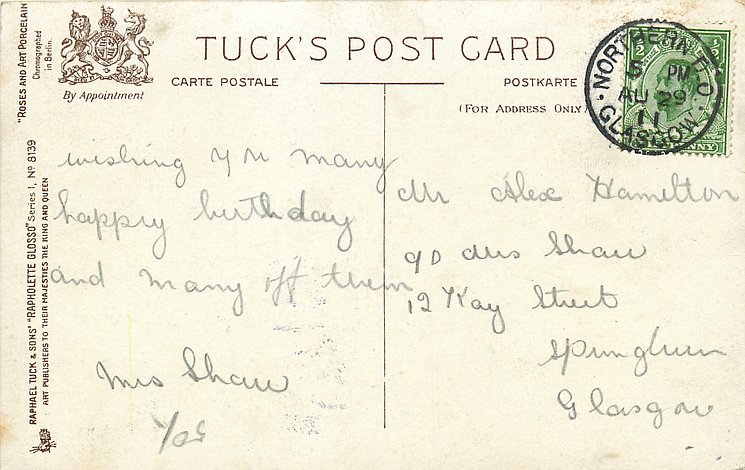 "ROSES AND ART PORCELAIN
Chromographed
in Berlin.
RAPHAEL TUCK & SONS' "RAPHOLETTE GLOSSO" Series I, No 8139
ART PUBLISHERS TO THEIR MAJESTIES THE KING AND QUEEN
By Appointment
TUCK'S POST CARD
CARTE POSTALE
POSTKARTE
(FOR ADDRESS ONLY)
NORTHERN E.O
5 PM
AU 29
11
GLASGOW
wishing you many
happy birthday
and many off them
Mrs Shaw
Mr Alex Hamilton
c/o Mrs Shaw
12 Kay Street
Springburn
Glasgow